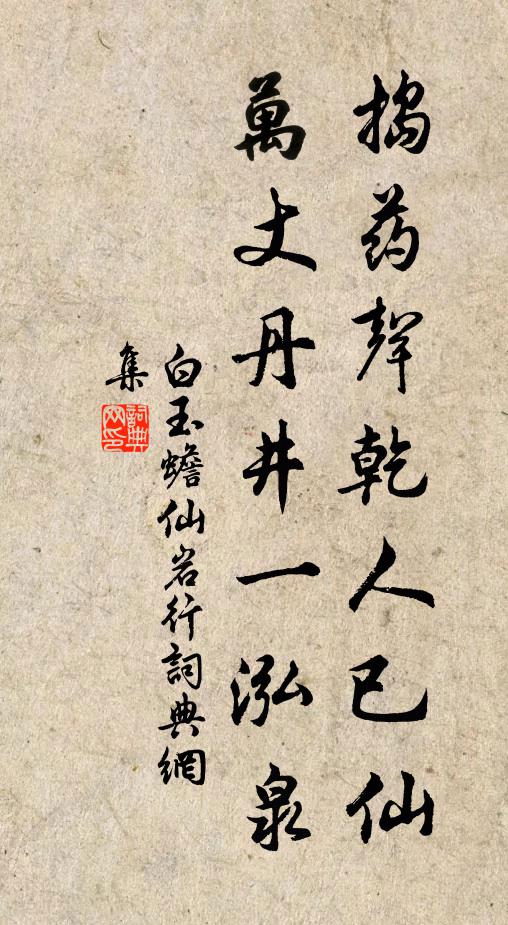 搗药聲乾人已仙
萬丈丹井一泓泉
白玉蟾仙岩行詞典網
集
詞典网印